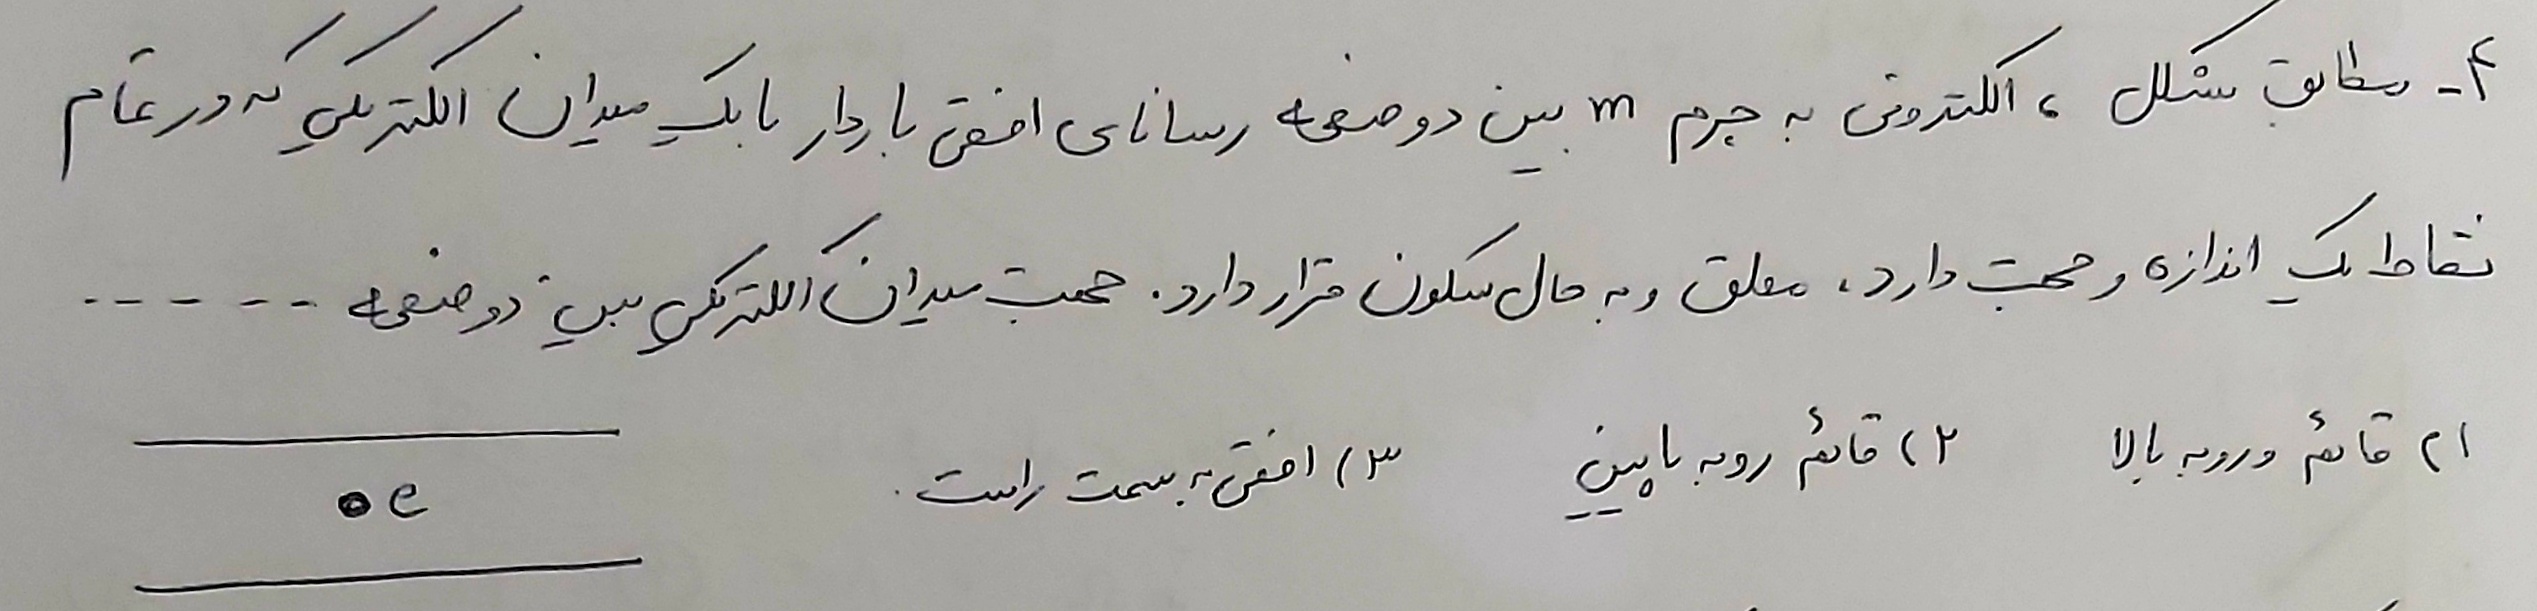 ۴- مطابق شکل، الکترونی به جرم m بین دو صفحه رسانای افقی باردار با یک میدان الکتریکی که در تمام
نقاط یک اندازه و جهت دارد، معلق و به حال سکون قرار دارد. جهت میدان الکتریکی بین دو صفحه ......
۱) قائم و رو به بالا ۲) قائم رو به پایین ۳) افقی به سمت راست.
e